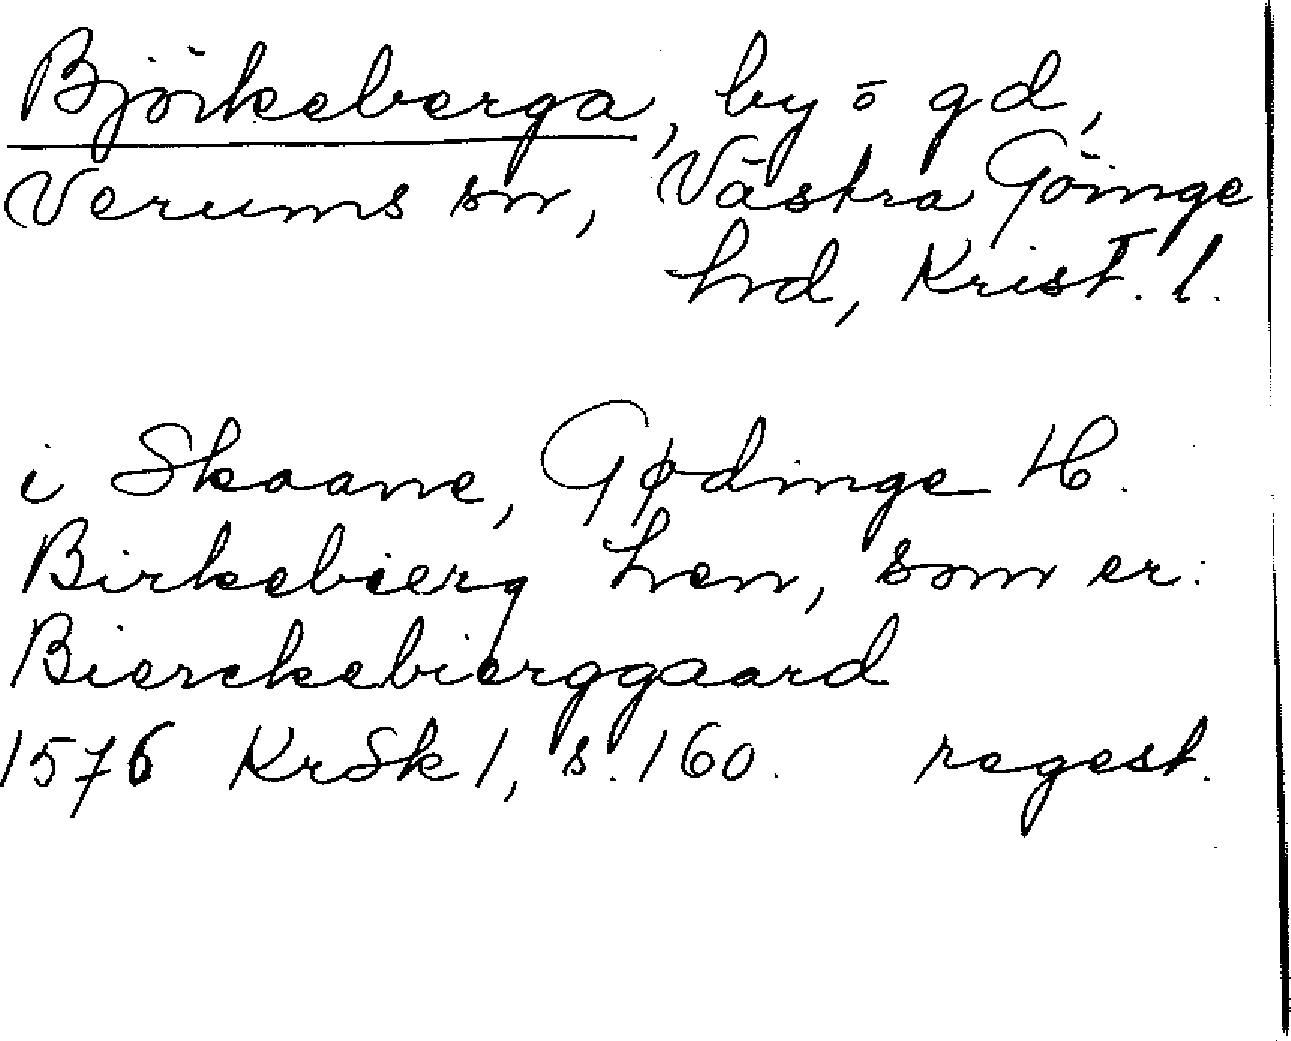 Björkeberga, by o gd,
Verums sn, Västra Göinge
hrd, Krist. l.
i Skaane, Gødinge H.
Birkebierg len, som er:
Bierckebierggaard
1576 KrSk 1, s. 160. regest.